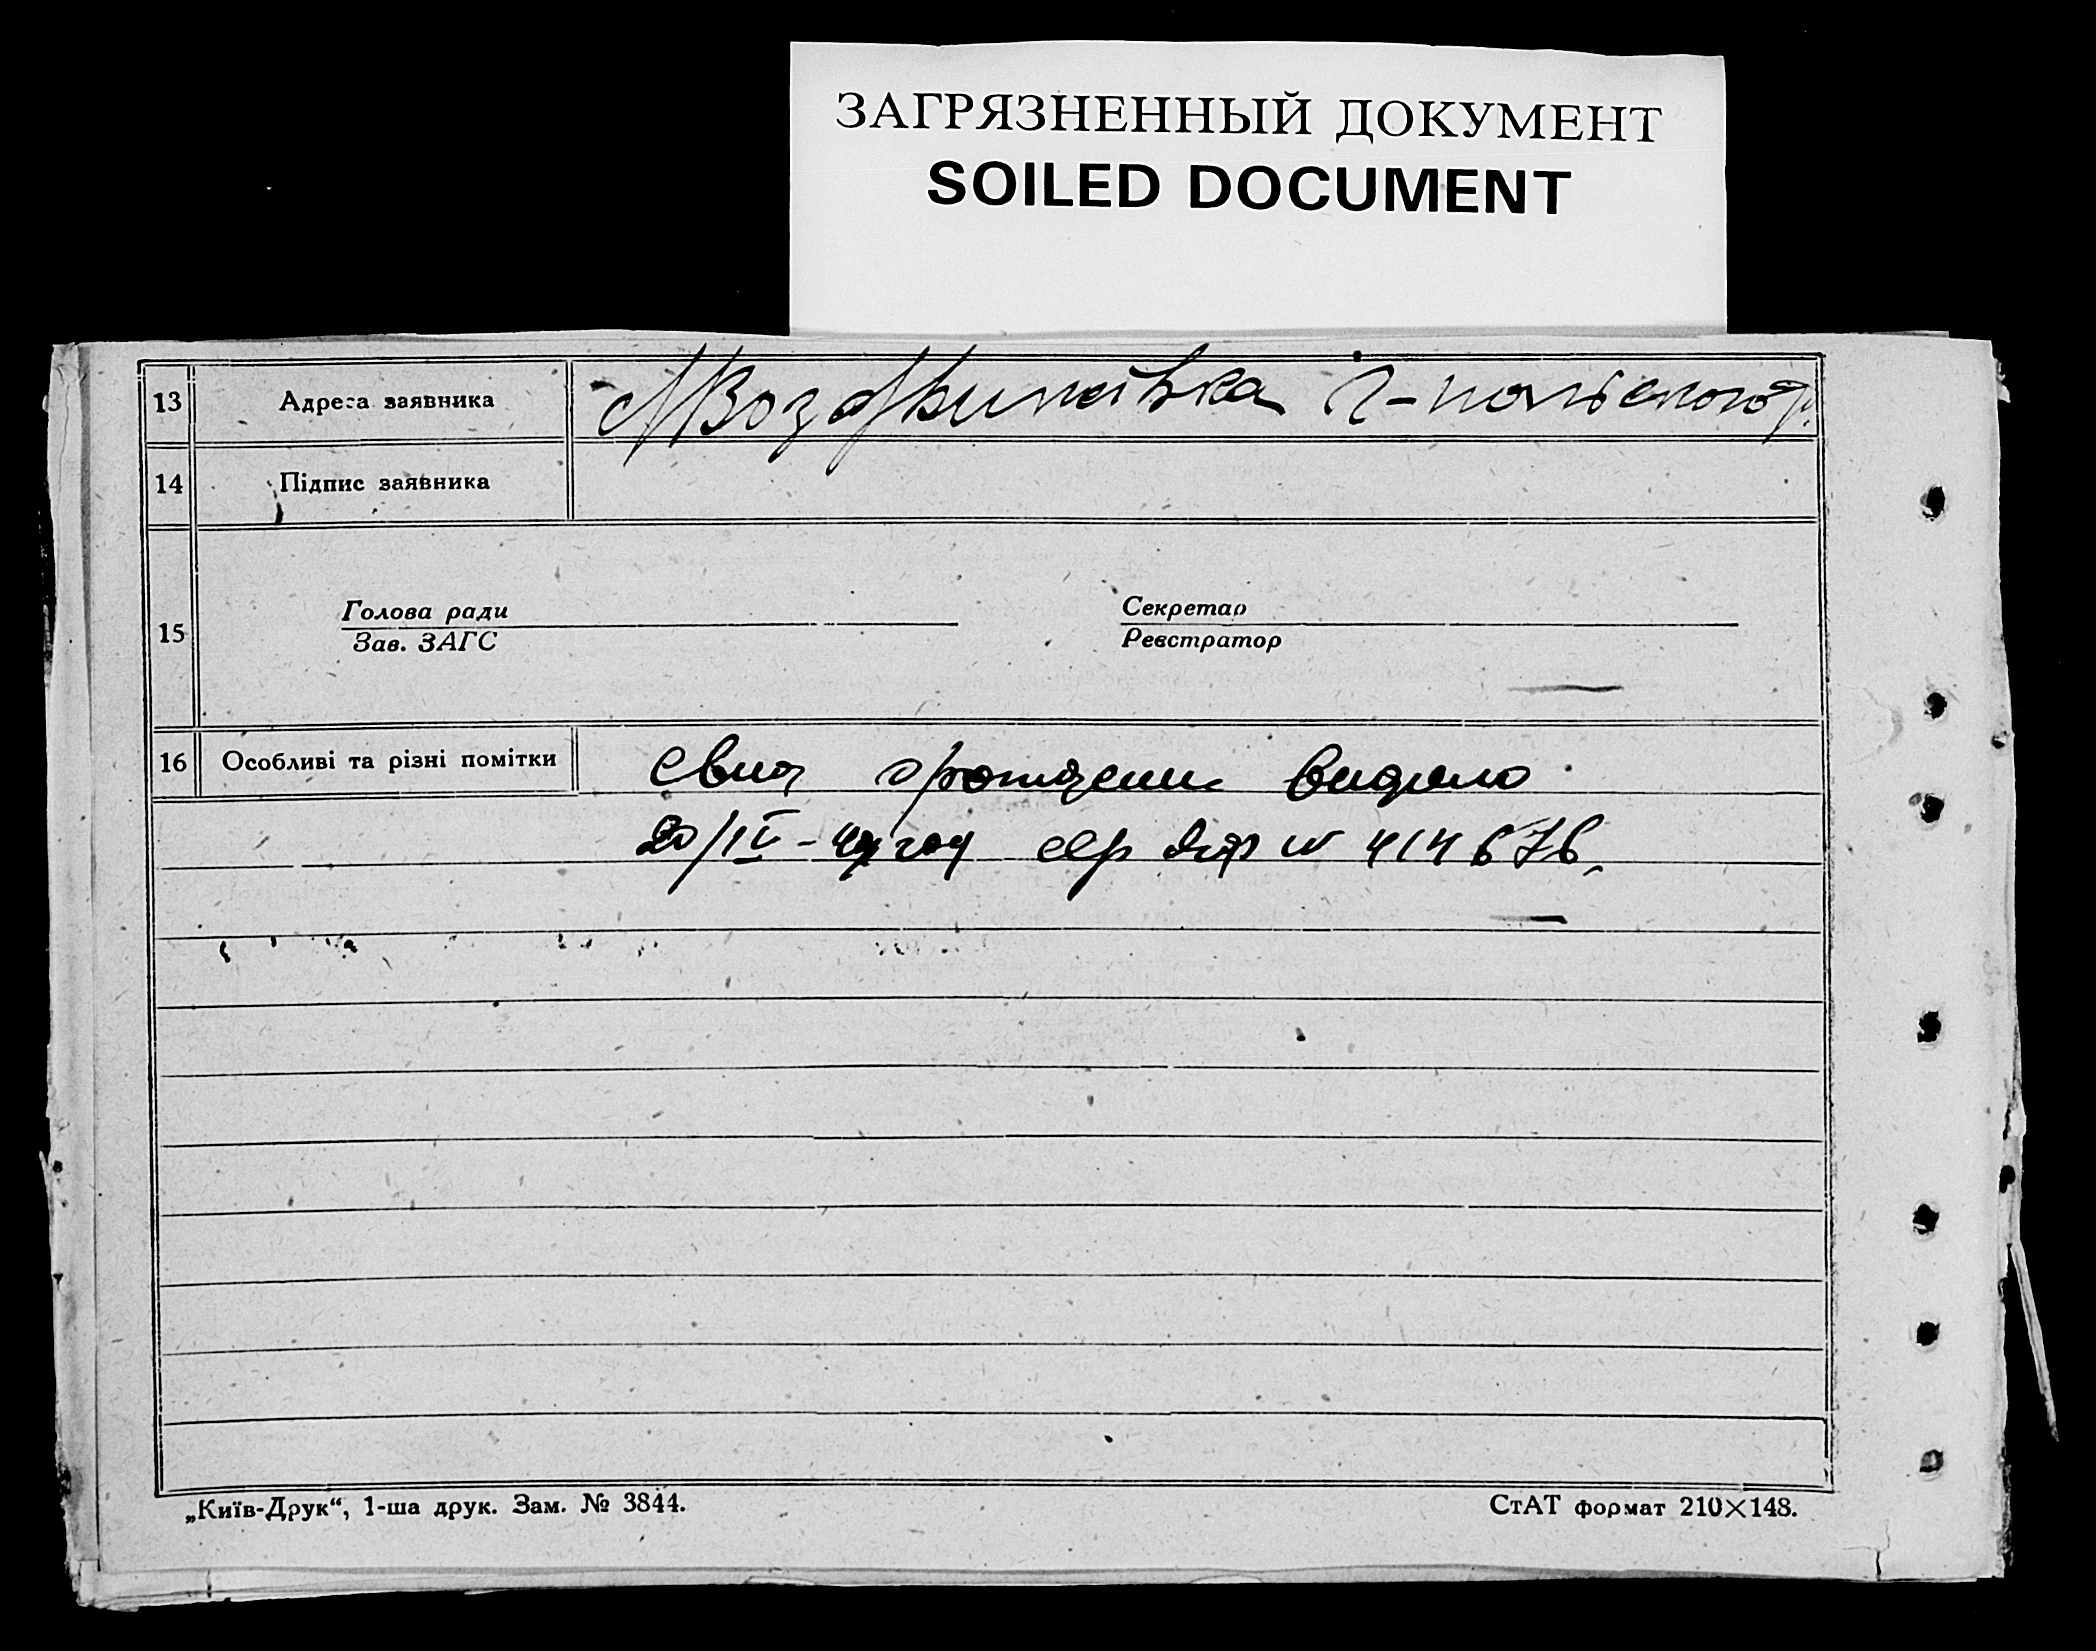 ЗАГРЯЗНЕННЫЙ ДОКУМЕНТ
SOILED DOCUMENT
13 Адреса заявника Г-польского р.
14 Підпис заявника
Голова ради Секретар
15
Зав. ЗАГС Реєстратор
16 Особливі та різні помітки видано
20/IV- год № 414676.
„Київ-Друк“, 1-ша друк. Зам. № 3844. СтАТ формат 210×148.